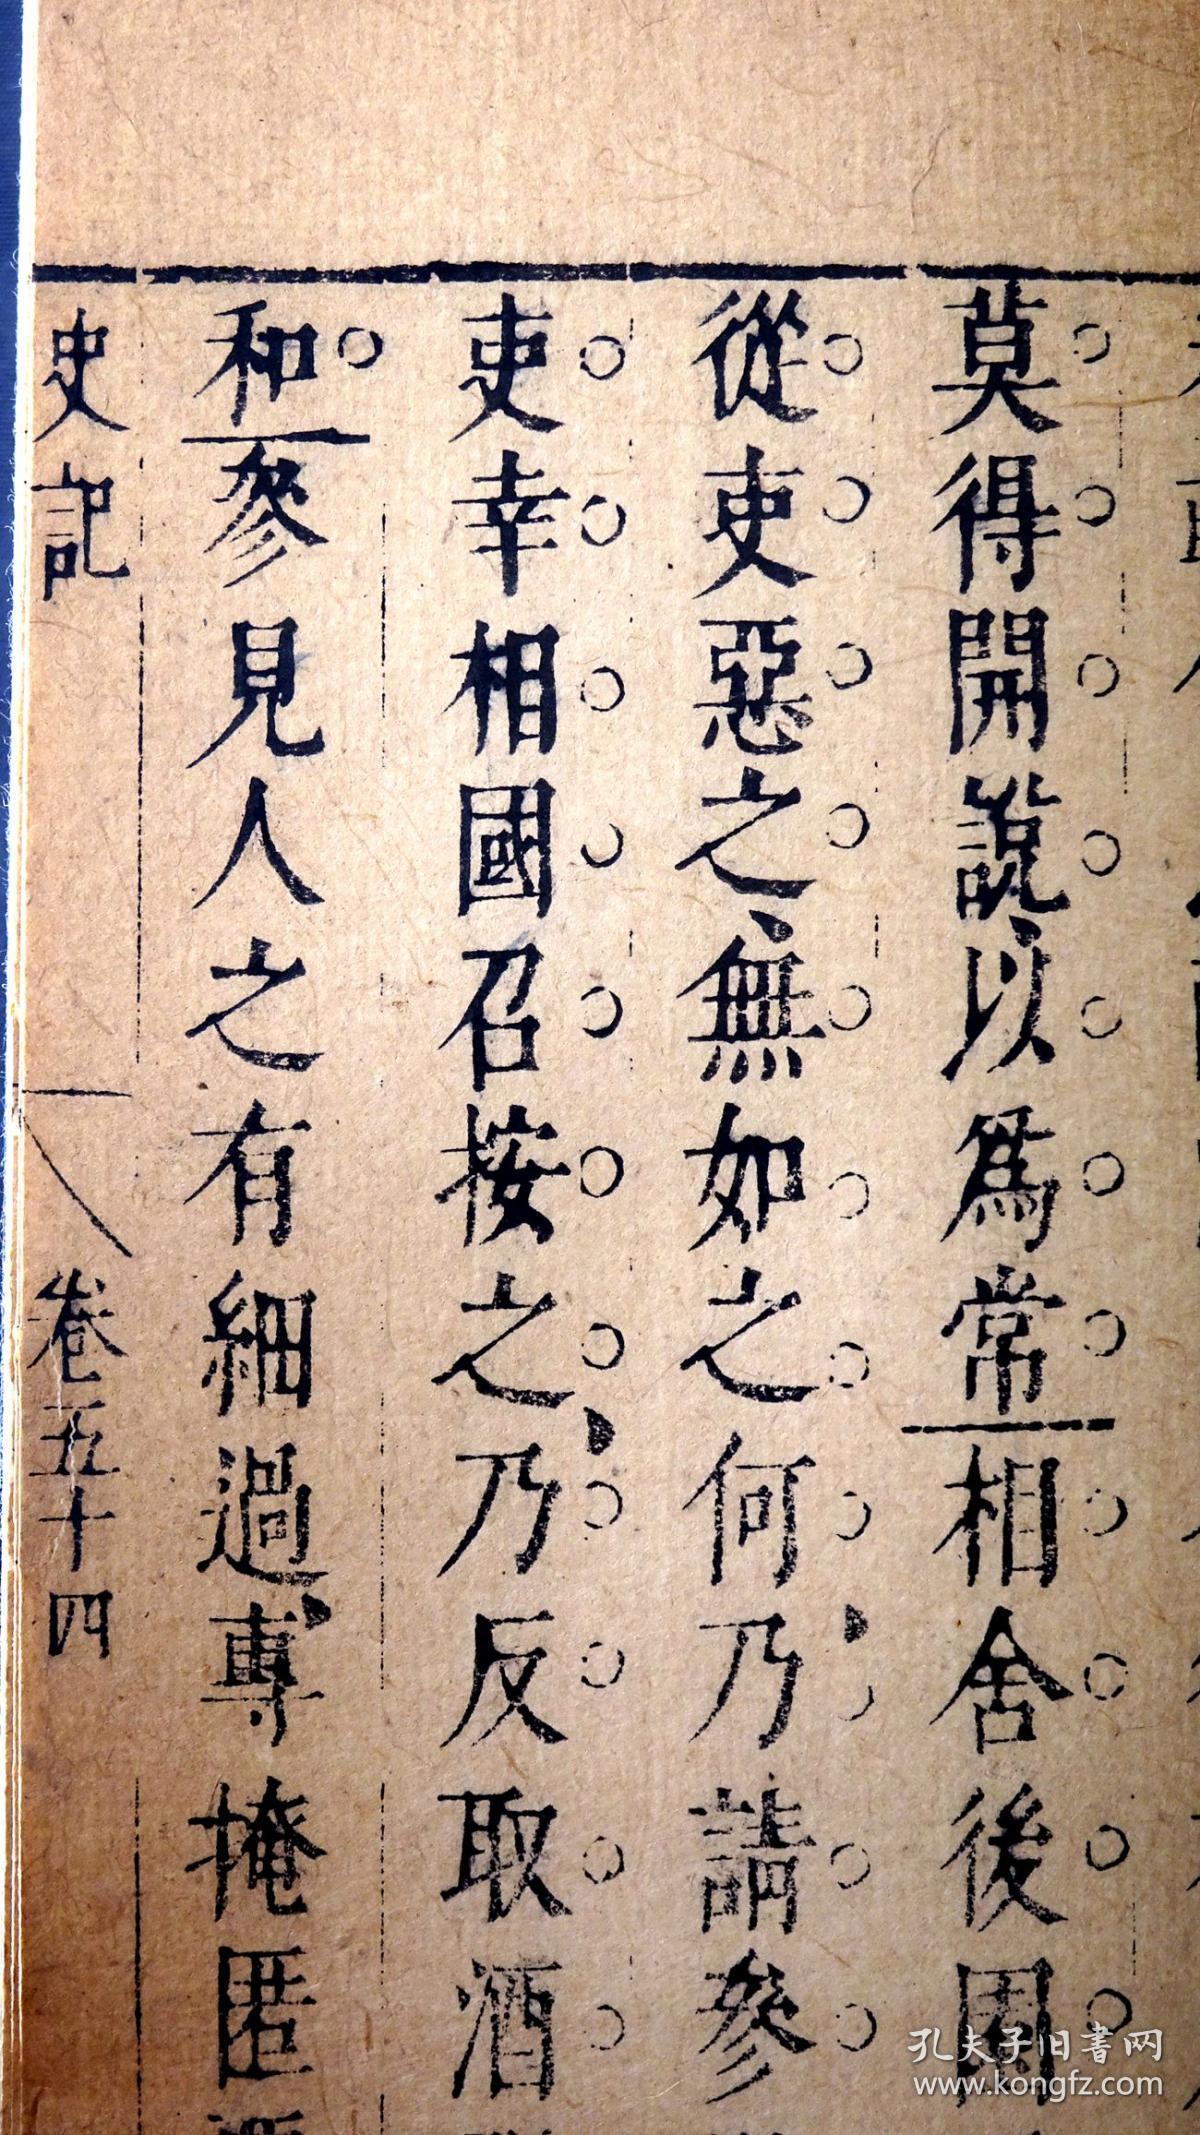 莫得開說以爲常相舍後園
從吏惡之無如之何乃請參
吏幸相國召按之乃反取酒
和參見人之有細過專掩匿
史記 卷五十四
孔夫子旧書网
www.kongfz.com